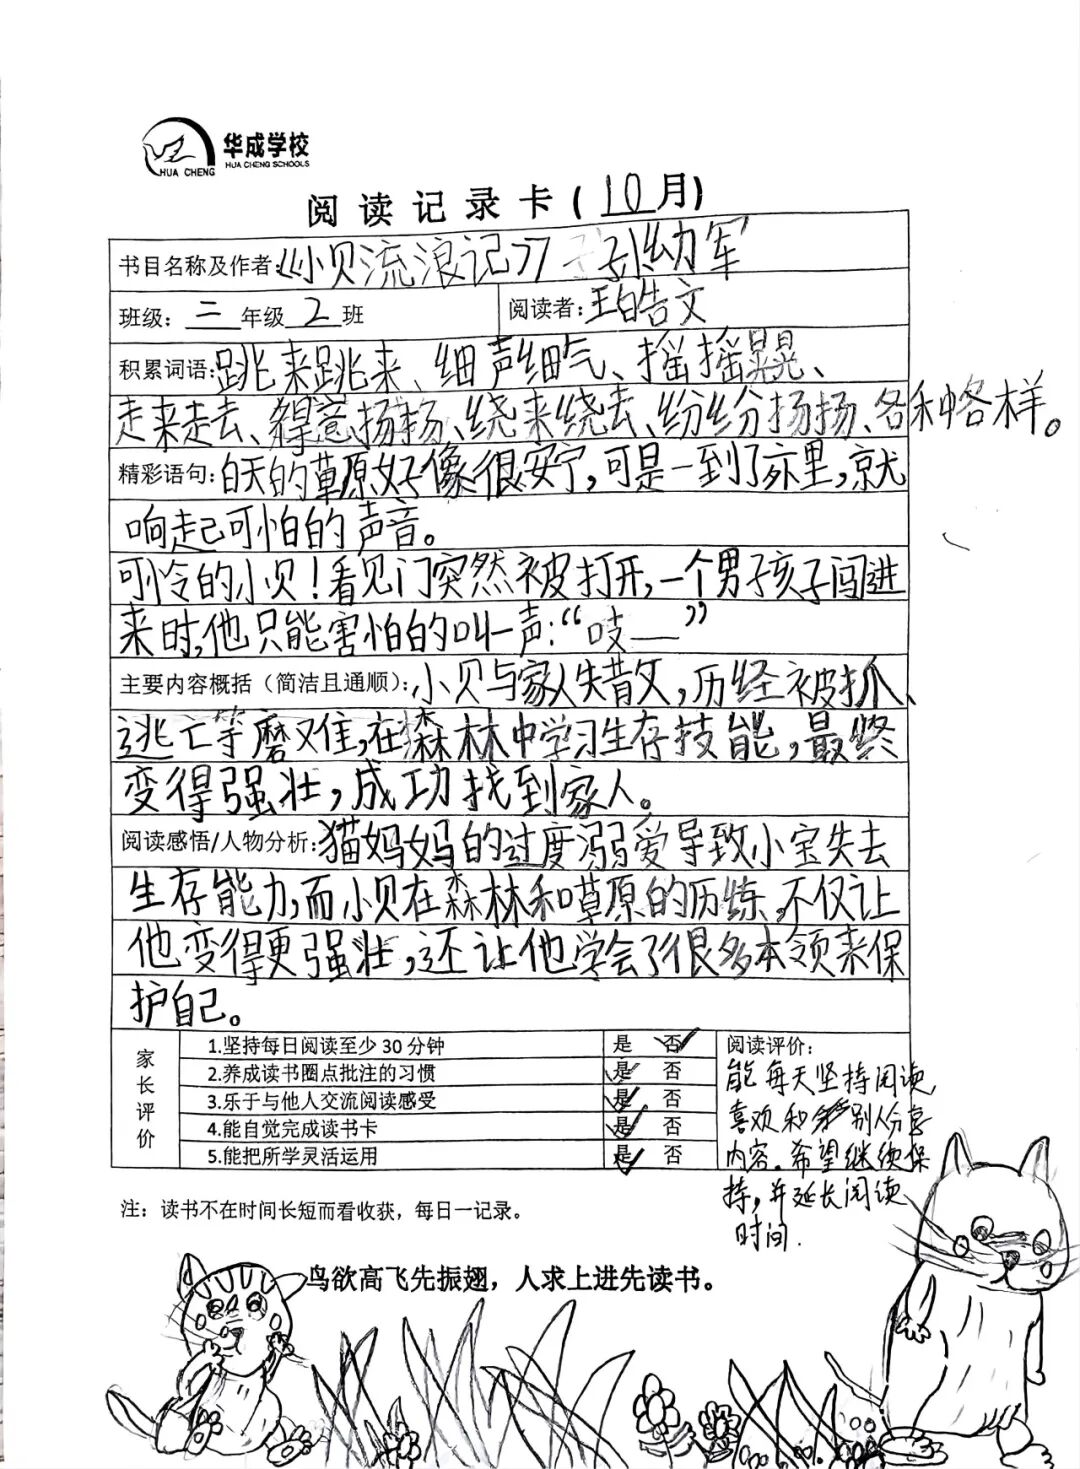 华成学校
HUA CHENG SCHOOLS
HUA CHENG
阅读记录卡(10月)
书目名称及作者:《小贝流浪记》 孙幼军
班级: 三 年级 2 班 阅读者: 王皓文
积累词语:跳来跳来、细声细气、摇摇晃晃、
走来走去、得意扬扬、绕来绕去、纷纷扬扬、各种各样。
精彩语句:白天的草原好像很安宁,可是一到了夜里,就
响起可怕的声音。
可怜的小贝!看见门突然被打开,一个男孩子闯进
来时,他只能害怕的叫一声:“吱——”
主要内容概括(简洁且通顺):小贝与家人失散,历经被抓、
逃亡等磨难,在森林中学习生存技能,最终
变得强壮,成功找到家人。
阅读感悟/人物分析:猫妈妈的过度溺爱导致小宝失去
生存能力,而小贝在森林和草原的历练,不仅让
他变得更强壮,还让他学会了很多本领来保
护自己。
家长评价
1.坚持每日阅读至少30分钟 是 否
2.养成读书圈点批注的习惯 是 否
3.乐于与他人交流阅读感受 是 否
4.能自觉完成读书卡 是 否
5.能把所学灵活运用 是 否
阅读评价:
能每天坚持阅读
喜欢和别人分享
内容。希望继续保
持,并延长阅读
时间.
注：读书不在时间长短而看收获，每日一记录。
鸟欲高飞先振翅，人求上进先读书。